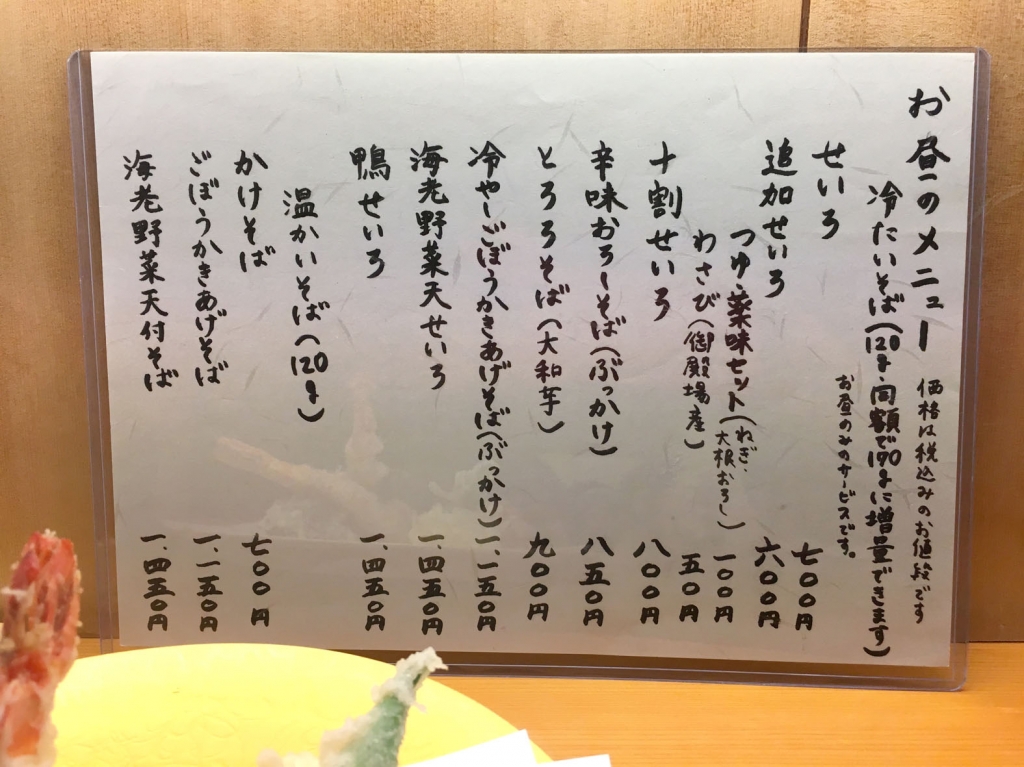 お昼のメニュー 価格は税込みのお値段です
冷たいそば(120g・同額で170gに増量できます)
お昼のみのサービスです。
せいろ 七〇〇円
追加せいろ 六〇〇円
つゆ・薬味セット(ねぎ、大根おろし) 一〇〇円
わさび(御殿場産) 五〇円
十割せいろ 八〇〇円
辛味おろしそば(ぶっかけ) 八五〇円
とろろそば(大和芋) 九〇〇円
冷やしごぼうかきあげそば(ぶっかけ) 一、一五〇円
海老野菜天せいろ 一、四五〇円
鴨せいろ 一、四五〇円
温かいそば(120g)
かけそば 七〇〇円
ごぼうかきあげそば 一、一五〇円
海老野菜天付そば 一、四五〇円